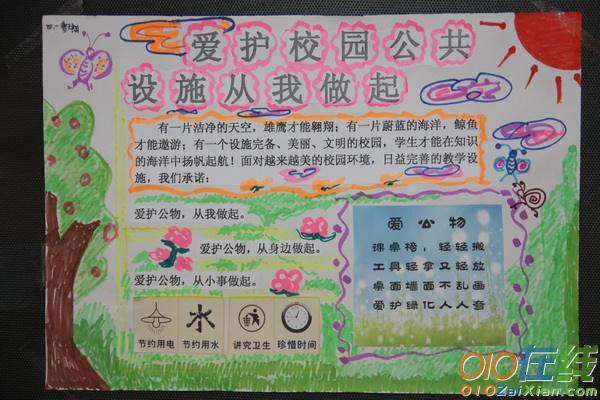 爱护校园公共
设施从我做起
有一片洁净的天空，雄鹰才能翱翔；有一片蔚蓝的海洋，鲸鱼
才能遨游；有一个设施完备、美丽、文明的校园，学生才能在知识
的海洋中扬帆起航！面对越来越美的校园环境，日益完善的教学设
施，我们承诺：
爱护公物，从我做起。
爱护公物，从身边做起。
爱护公物，从小事做起。
节约用电
节约用水
讲究卫生
珍惜时间
爱公物
课桌椅，轻轻搬
工具轻拿又轻放
桌面墙面不乱画
爱护绿化人人夸
010在线
010ZaiXian.com